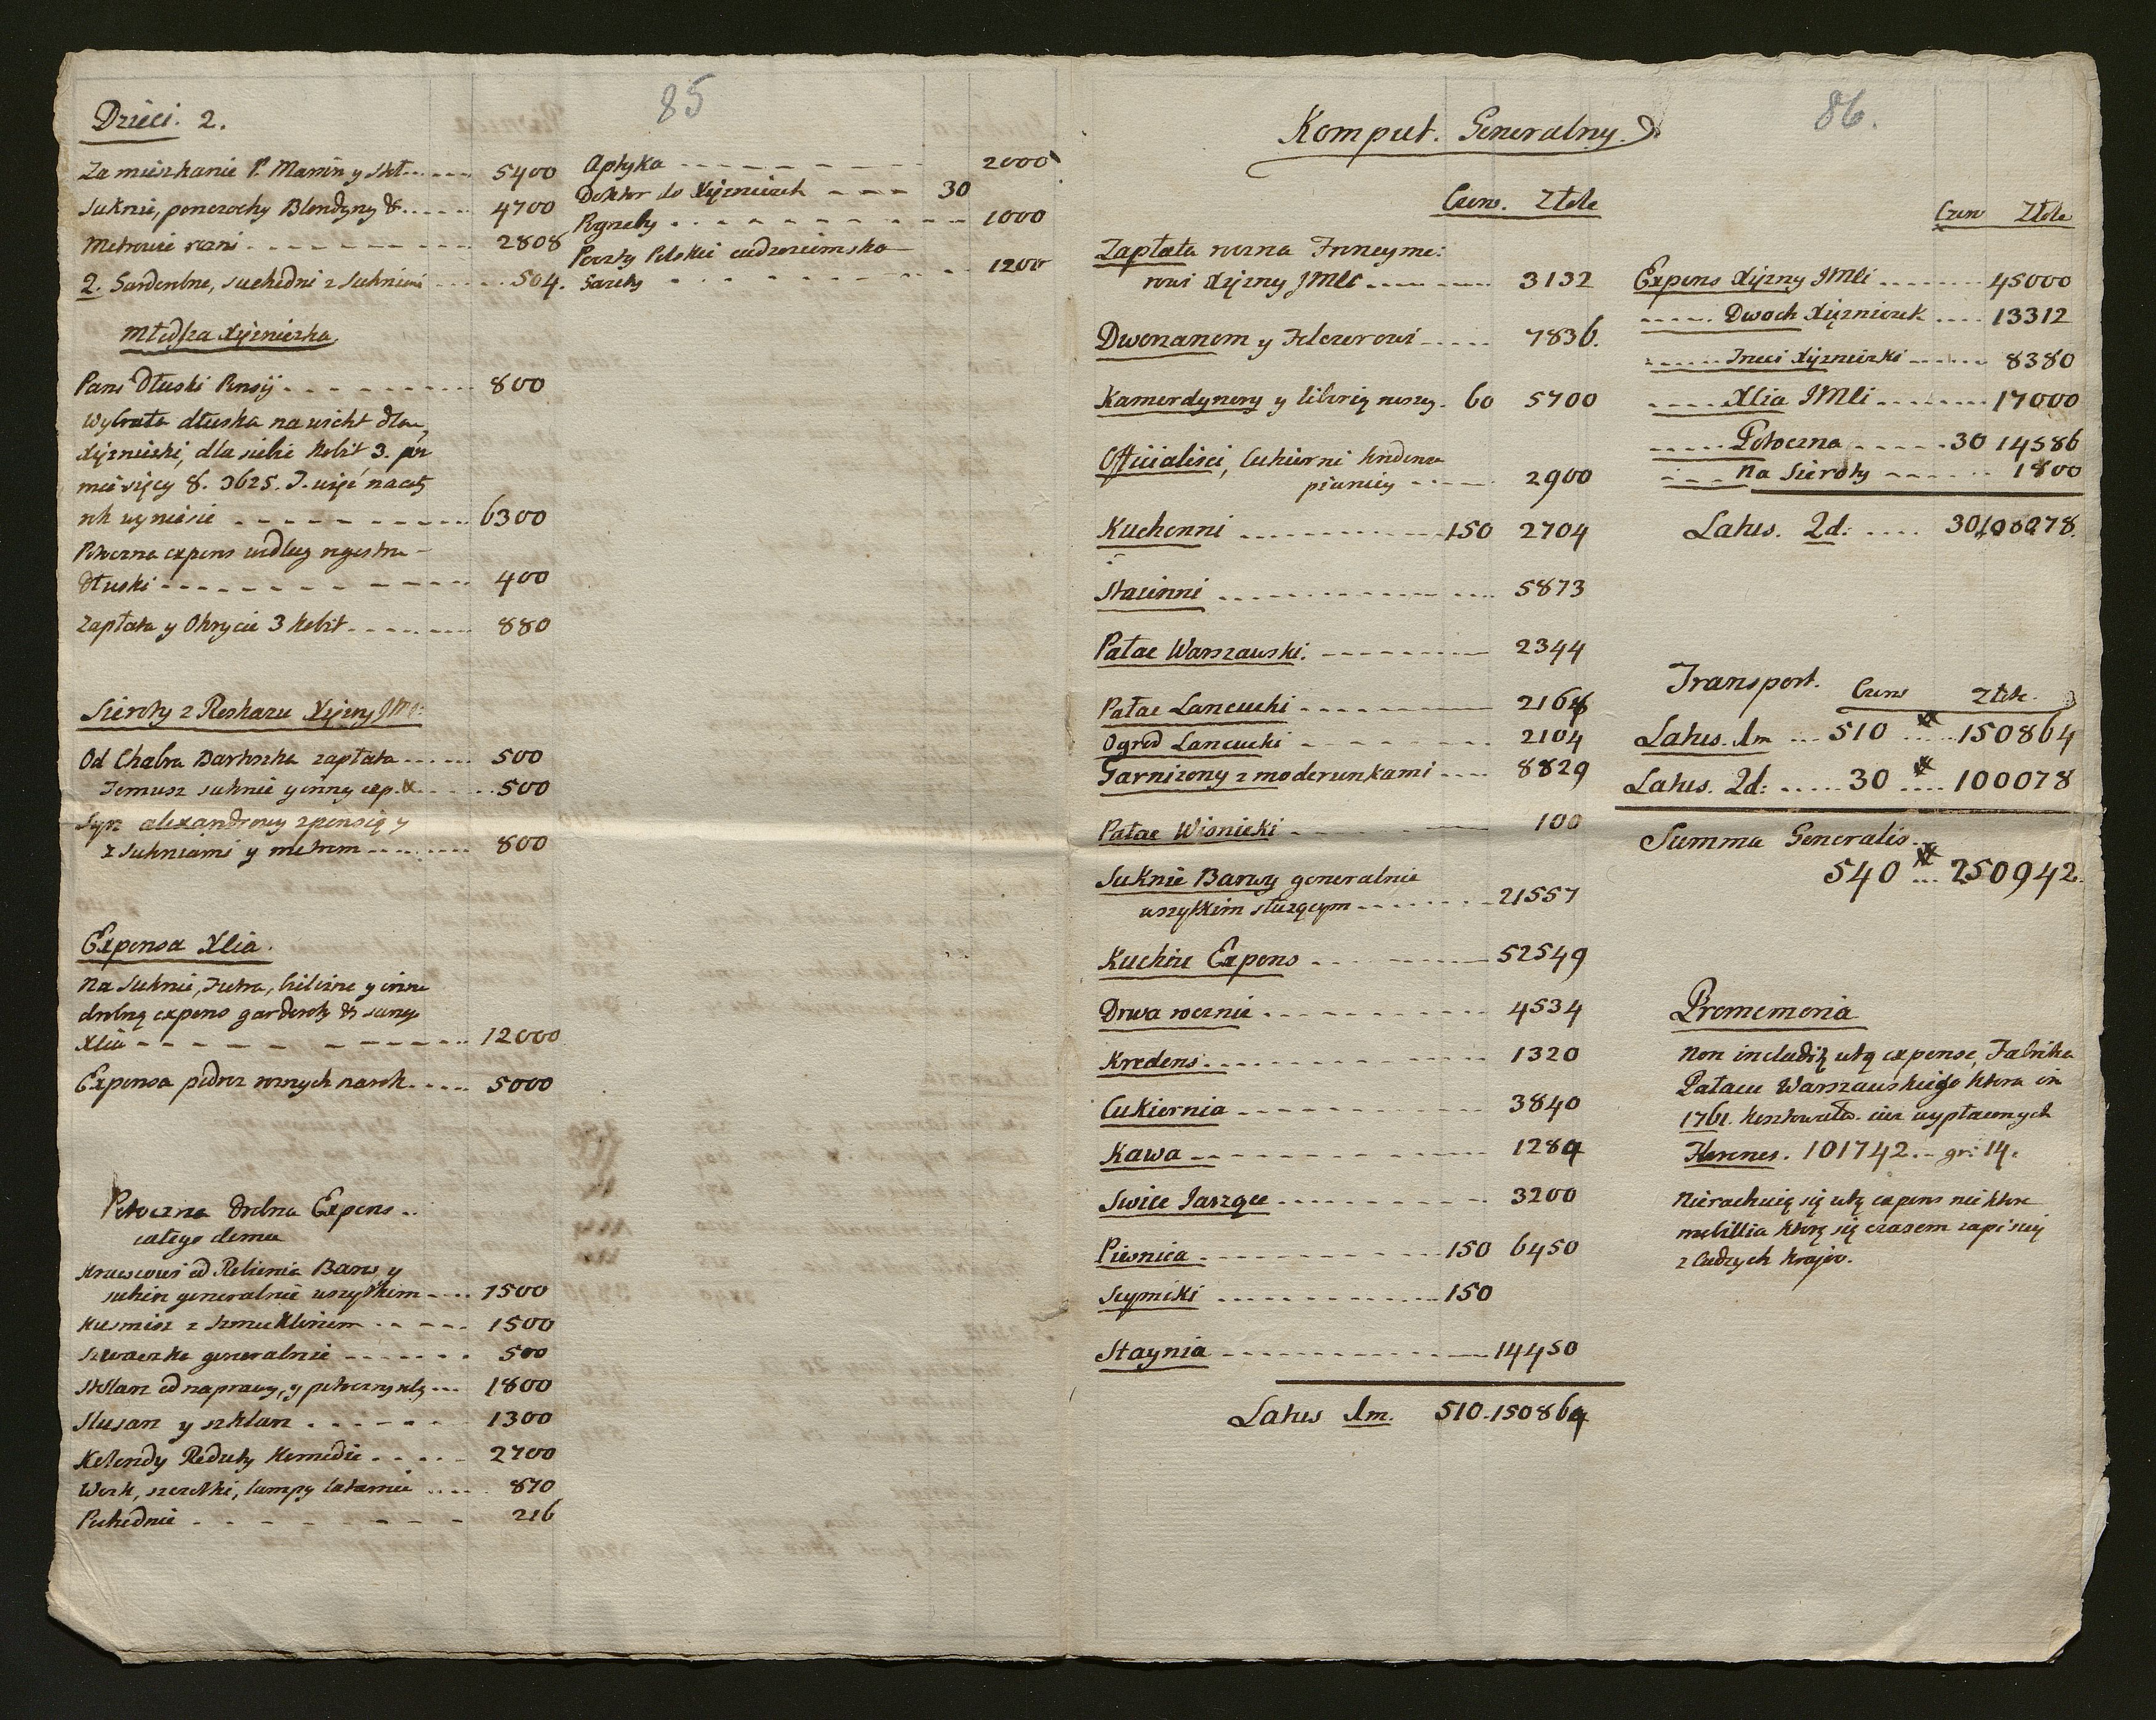 85
Dzieci. 2.
Za mieszkanie P. Mamin y Skł. 5400
Suknie, ponczochy Blondyny & 4700
Metrowie rożni 2808
2. Garderobne, suchedni z Sukniami 504.
Młodsza Xiężniczka
Pani Dłuski Pensÿ 800
Wybrała dłuska na wicht dla
Xiężniczki, dla siebie Kobit 3. prz
miesięcy 8. 3625.
rok wyniesie 6300
Potoczna expens według regestru
Dłuski 400
Zapłata y Okrycie 3 Kobit 880
Sieroty z Roskazu Xiężny JMci
Od Chabra Bartoszka zapłata 500
Temusz suknie y inny exp. & 500
Syn alexandrowy z pensią y
z Sukniami y metrem 800
Expensa Xcia.
Na Suknie, Futra, bilizne y inne
drobną expens garderoby & samego
Xcia 12000
Expensa podroz roznych na rok 5000
Potoczna drobna Expens
całego domu
Krawcowi od Robienia Barwy y
sukien generalnie wszystkim 7500
Kusmierz z Szmuklirzem 1500
Szwaczka generalnie 500
Stolarz od naprawy, y potoczny robo 1800
Slusarz y szklarz 1300
Kolendy Reduty Komedie 2700
Wosk, szczotki, lampy latarnie 870
Pochodnie 216
Aptyka 2000
Doktor do Xiężniczek 30
Pogrzeby 1000
Poczty Polskie cudzoziemska
Gazety 1200
86.
Komput. Generalny.
Czerw. Złote
Zapłata roczna Fraucyme:
rowi Xiężny JMCi 3132
Dworzanom y Felczerowi 7836.
Kamerdynery y liberią naszey 60 5700
Officialisci, Cukierni Kredensu
piwnicy 2900
Kuchenni 150 2704
Stacinni 5873
Pałac Warszawski. 2344
Pałac Lancucki 2168
Ogrod Lancucki 2104
Garnizony z moderunkami 8829
Pałac Wisnicki 100
Suknie Barwy generalnie
wszystkim służącym 21557
Kuchie Expens 52549
Drwa rocznie 4534
Kredens 1320
Cukiernia 3840
Kawa 1284
Swice Jarzące 3200
Piwnica 150 6450
Seymiki 150
Staynia 14450
Latus 1m. 510. 150864
Czerw Złote
Expens Xiężny JMci 45000
Dwoch Xiężniczek 13312
Trzeci Xiężniczki 8380
Xcia JMci 17000
Potoczna 30 14586
Na Sieroty 1800
Latus. 2d: 30 100078.
Transport. Czerw Złote.
Latus. 1m 510 150864
Latus. 2d: 30 100078
Summa Generalis.
540 250942.
Promemoria
Non includitą w tą expense, Fabrika
Pałacu Warszawskiego ktora in
1761. kosztowała. wypłaconych
101742. gr: 14.
Nierachuię się w tę expens nie ktore
mebillia ktorę się czasem zapisuię
z Cudzych Kraiow.